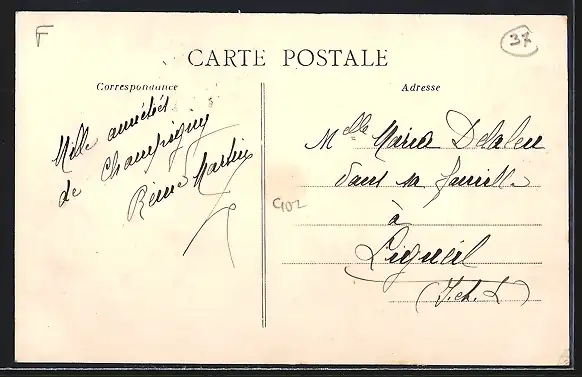 F
37
CARTE POSTALE
Correspondance
Adresse
Mille amitiés
de Champigny
Martin
Melle Maria Delaleu
dans sa famille
à
Ligueil
(I. et. L)
C102